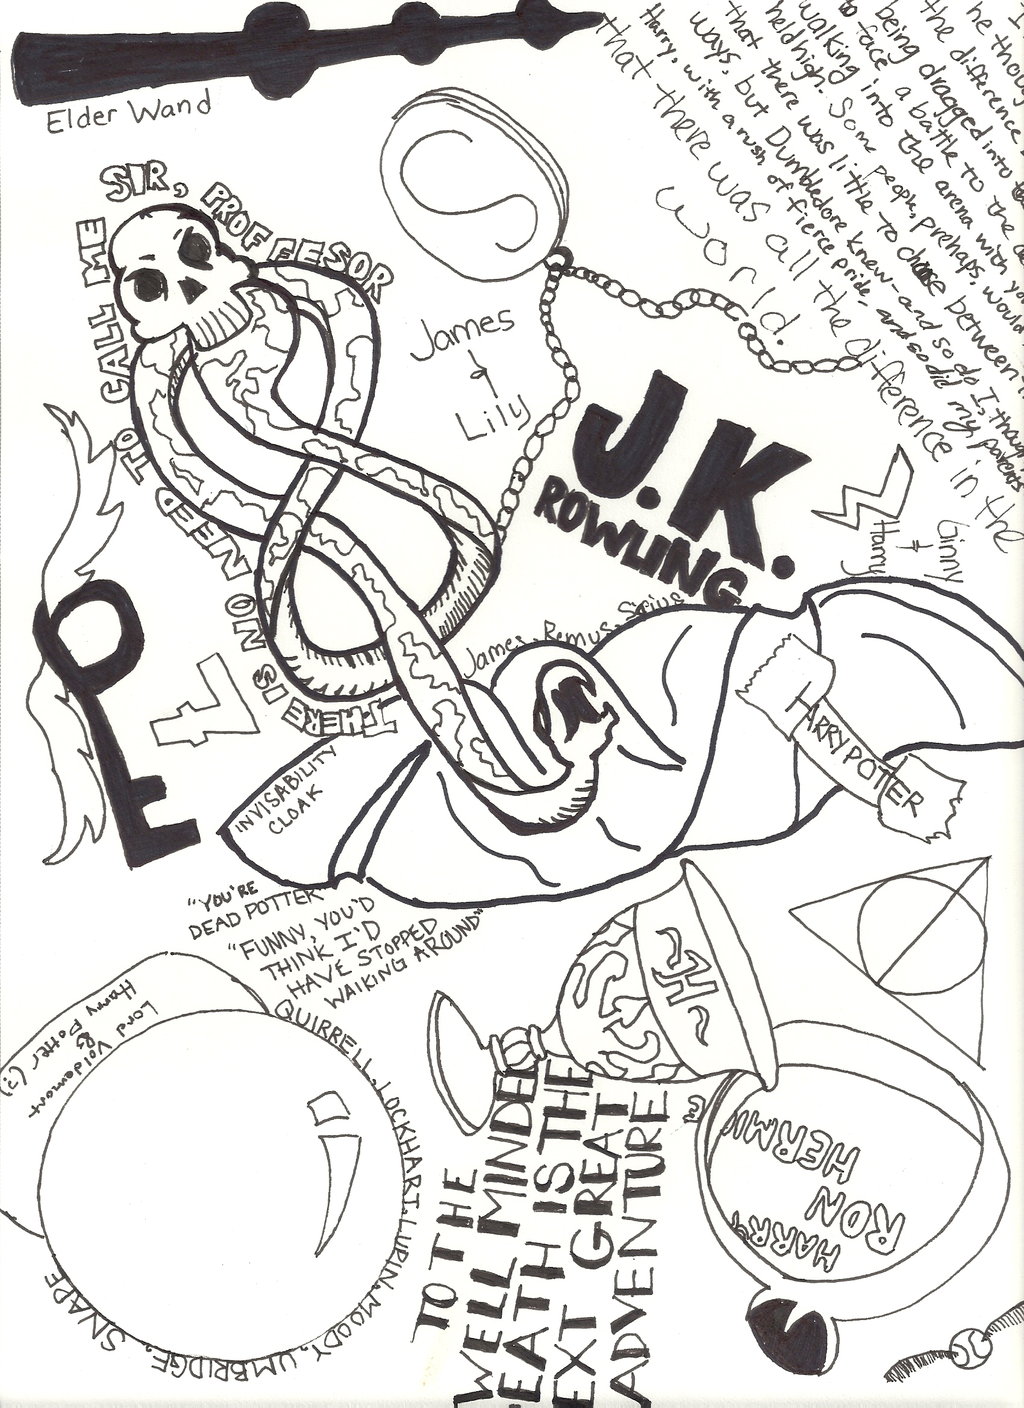 Elder Wand
THERE IS NO NEED TO CALL ME SIR, PROFFESOR
James
&
Lily
J.K.
ROWLING
he
the difference
being dragged into
to face a battle to the
walking into the arena with
held high. Some people, prehaps, would
that there was little to choose between
ways, but Dumbledore knew-and so do I,
Harry, with a rush of fierce pride, and so did my parents
that there was all the difference in the
world.
Harry
+
Ginny
James, Remus, Sirius
INVISABILITY
CLOAK
HARRY POTTER
"YOU'RE
DEAD POTTER"
"FUNNY, YOU'D
THINK I'D
HAVE STOPPED
WALKING AROUND"
Lord Voldemort
vs
Harry Potter (:?)
QUIRRELL, LOCKHART, LUPIN, MOODY, UMBRIDGE, SNAPE
H
TO THE
WELL MINDED
EATH IS THE
EXT GREAT
ADVENTURE
HARRY
RON
HERMI